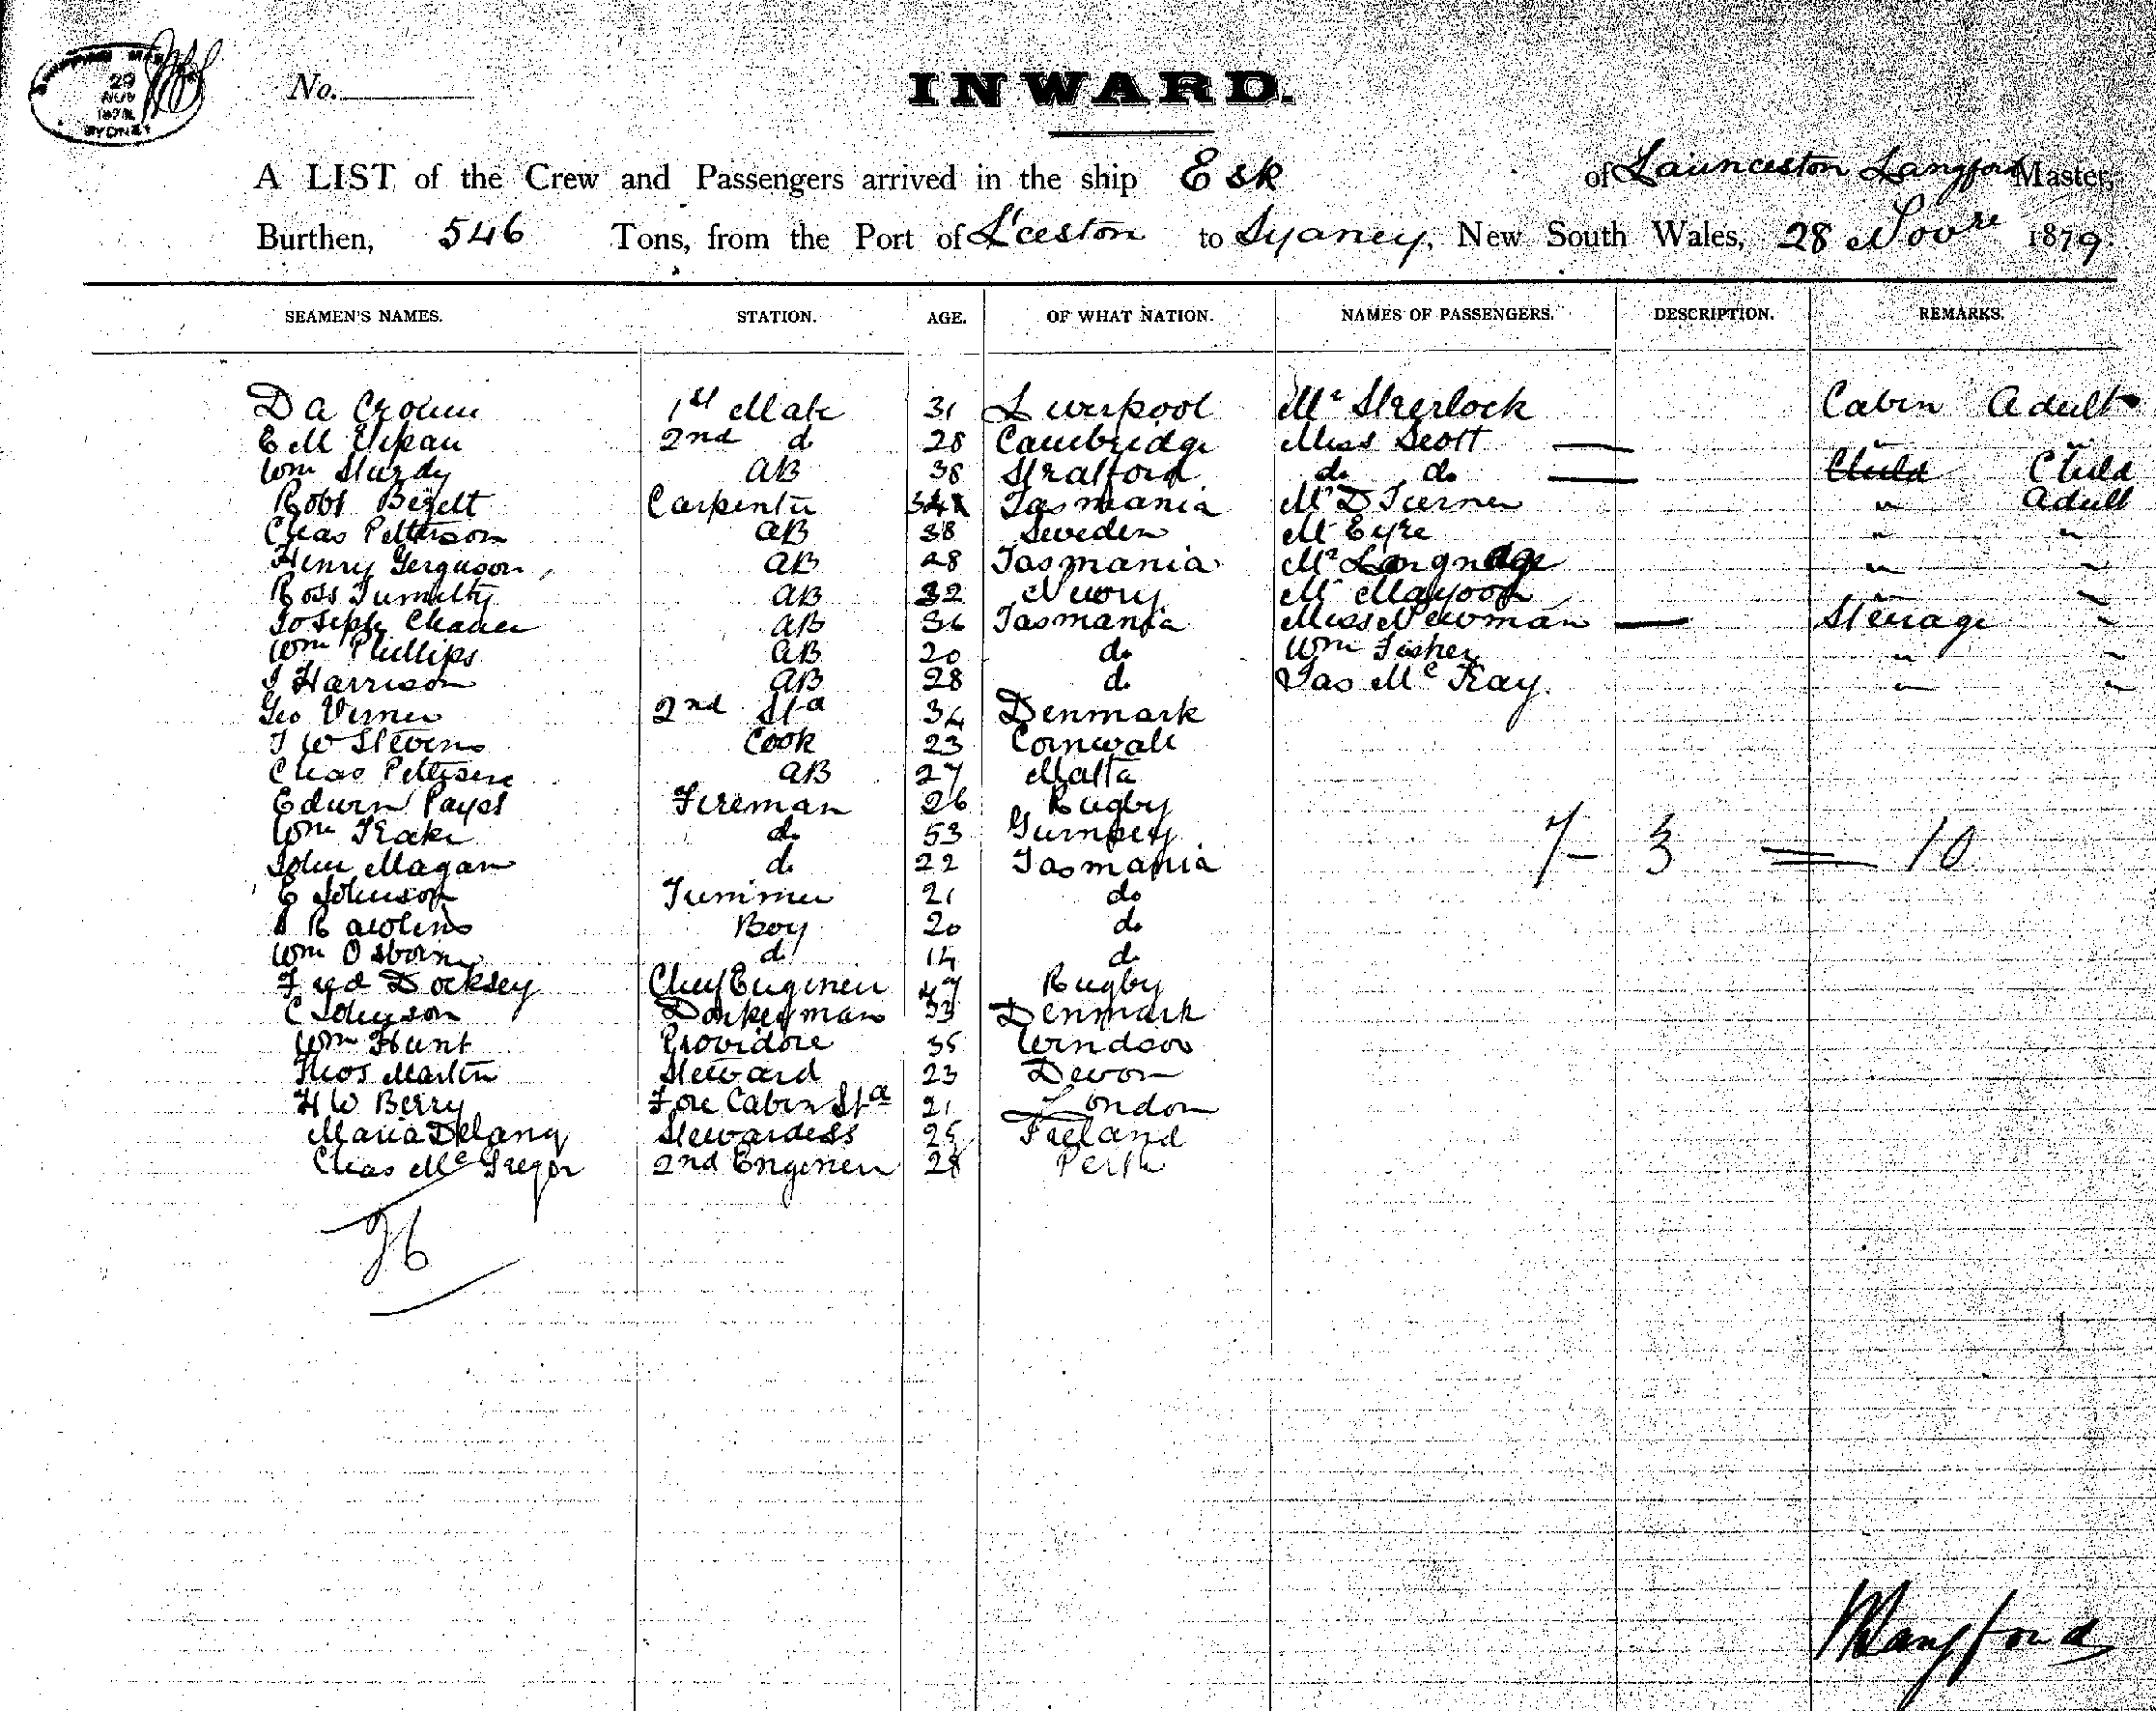 29
NOV
SYDNEY
No.
INWARD.
A LIST of the Crew and Passengers arrived in the ship Esk of Launceston Langford Master,
Burthen, 546 Tons, from the Port of L'ceston to Sydney, New South Wales, 28 Novre 1879
SEAMEN'S NAMES. STATION. AGE. OF WHAT NATION. NAMES OF PASSENGERS. DESCRIPTION. REMARKS.
D A 1st Mate 31 Liverpool Mr Sherlock Cabin Adult
E M 2nd do 28 Cambridge Miss Scott " "
Wm Sturdy AB 38 Stratford do do Child Child
Robt Carpenter Tasmania Mr D Turner " Adult
Chas Petterson AB 38 Sweden Mr Eyre " "
Henry Ferguson AB 28 Tasmania Mr " "
Ross Tumilty AB 32 Newry Mr " "
Joseph AB 36 Tasmania Miss Newman Steerage "
Wm Phillips AB 20 do Wm Fisher " "
J Harrison AB 28 do Jas McKay " "
Geo Verner 2nd Std 34 Denmark
J W Stevens Cook 23 Cornwall
Chas AB 27 Malta
Edwin Fireman 26 Rugby
Wm do 53
John Magan do 22 Tasmania 7 - 3 = 10
E Johnson Trimmer 21 do
Rawlins Boy 20 do
Wm Osborne do 14 do
Fred Docksey Chief Engineer 47 Rugby
C Johnson Donkeyman 33 Denmark
Wm Hunt Providore 35 Windsor
Thos Martin Steward 23 Devon
H W Berry Fore Cabin Std 21 London
Maria Delany Stewardess 25 Ireland
Chas McGregor 2nd Engineer 28 Perth
26
Langford